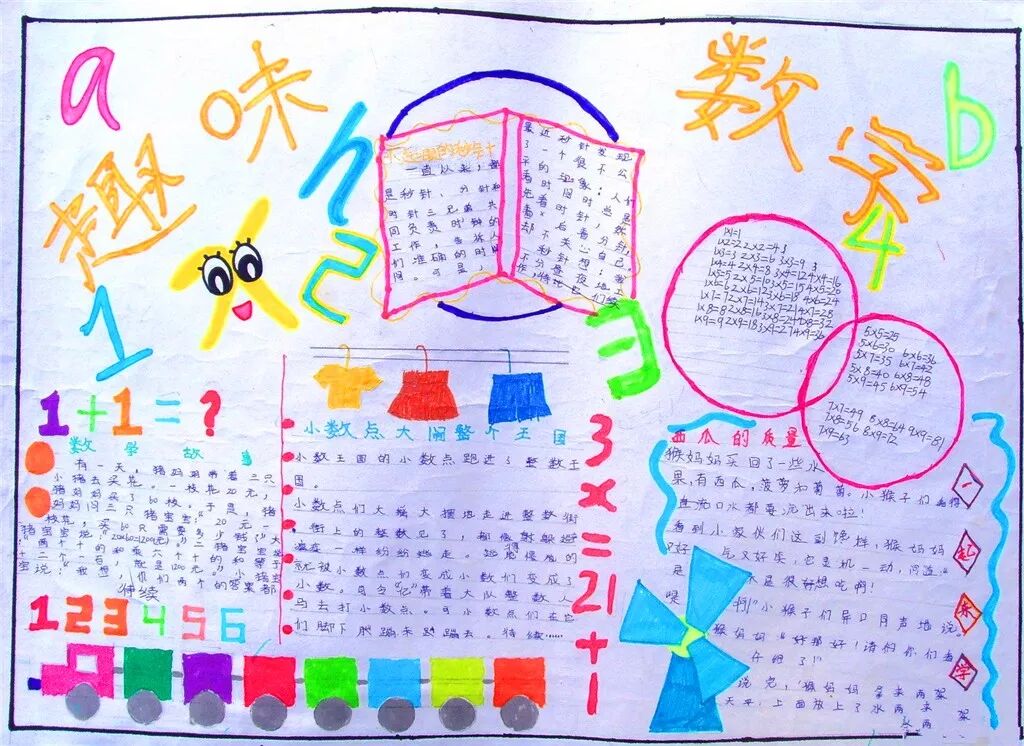 趣味数学
a
b
h
1
2
3
4
一直从来，都
是秒针、分针和
时针三兄弟共
同负责时钟的
工作，告诉人
们准确的时
间。可是，
最近秒针发现
了一个很不公
平的现象：人们
看时间时总是
先看时针，然
后看分针，
却不关心自己。
秒针想：我
不分昼夜地工
作，
1×1=1
1×2=2 2×2=4
1×3=3 2×3=6 3×3=9
1×4=4 2×4=8 3×4=12 4×4=16
1×5=5 2×5=10 3×5=15 4×5=20
1×6=6 2×6=12 3×6=18 4×6=24
1×7=7 2×7=14 3×7=21 4×7=28
1×8=8 2×8=16 3×8=24 4×8=32
1×9=9 2×9=18 3×9=27 4×9=36
5×5=25
5×6=30 6×6=36
5×7=35 6×7=42
5×8=40 6×8=48
5×9=45 6×9=54
7×7=49 8×8=64 9×9=81
7×8=56 8×9=72
7×9=63
1+1=?
数学故事
有一天，猪妈妈带着三只
小猪去买花。一枝花20元，
猪妈妈买了60枝。于是，猪
妈妈问三只猪宝宝：“20元一
枝花，买60只需要多少钱？”大
猪宝宝说：“20×60=1200(元)。”二猪宝宝
待续
1 2 3 4 5 6
小数点大闹整个王国
小数王国的小数点跑进了整数王
国。
小数点们大摇大摆地走进整数街
，街上的整数见了，都像躲避
瘟疫一样纷纷逃走。
就被小数点们变成小数们变成了
小数。司令“亿”带着大队整数人
马去打小数点。可小数点们在它
们脚下蹦来蹦去。待续……
3×=21+1
西瓜的质量
猴妈妈买回了一些水
果，有西瓜，菠萝和葡萄。小猴子们
连口水都要流出来啦！
看到小家伙们这副馋样，猴妈妈
“好 气又好笑，它灵机一动，问道：“
是 不是很好想吃啊！
啊！”小猴子们异口同声地说。
猴妈妈“好那好！请你们看
仔细了！”
说完，猴妈妈拿来两架
天平，上面放上了
一
起
来
学